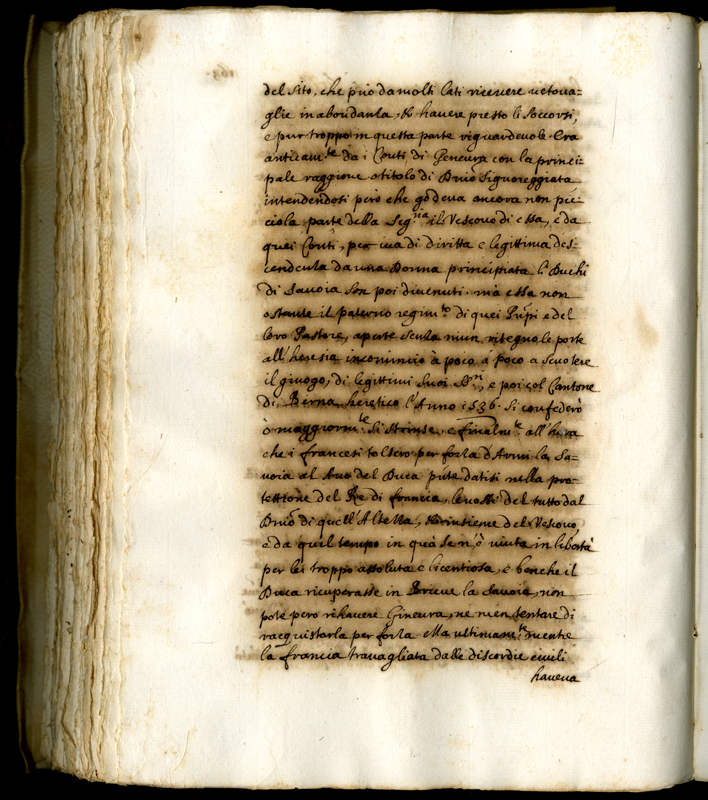 del sito, che può da molti lati ricevere uetoua=
glie in abondanza, & hauere presto li soccorsi,
e pur troppo in questa parte riguardeuole. Era
anticam.te da i Conti di Geneura con la princi=
pale raggione o titolo di Dnio Signoreggiata
intendendosi però che godeua ancora non pic=
ciola parte della Sig.ria il Vescouo di essa, e da
quei Conti, per uia di diritta e legittima des=
cendenza da una Donna principiata li Duchi
di Sauoia son poi diuenuti. mà essa non
ostante il paterno regim.to di quei Prńpi e del
loro Pastore, aperte senza niun ritegno le porte
all'heresia incominciò à poco à poco a scuotere
il giuogo, di legittimi suoi S.ri, e poi col Cantone
di Berna heretico l'Anno 1536. si confederò
ò maggiorm.te si strinse, e finalm.te all'hora
che i francesi tolsero per forza d'Armi la Sa=
uoia al Auo del Duca pńte datisi nella pro=
tettione del Re di francia, leuossi del tutto dal
Dnio di quell'Altezza, & insieme del Vescouo,
e da quel tempo in quà se n'è uiuta in libertà
per lei troppo assoluta e licentiosa, e benche il
Duca ricuperasse in breue la Sauoia, non
potè pero rihauere Gineura, ne men tentare di
racquistarla per forza. Ma ultimam.te mentre
la francia trauagliata dalle discordie ciuili
haueua